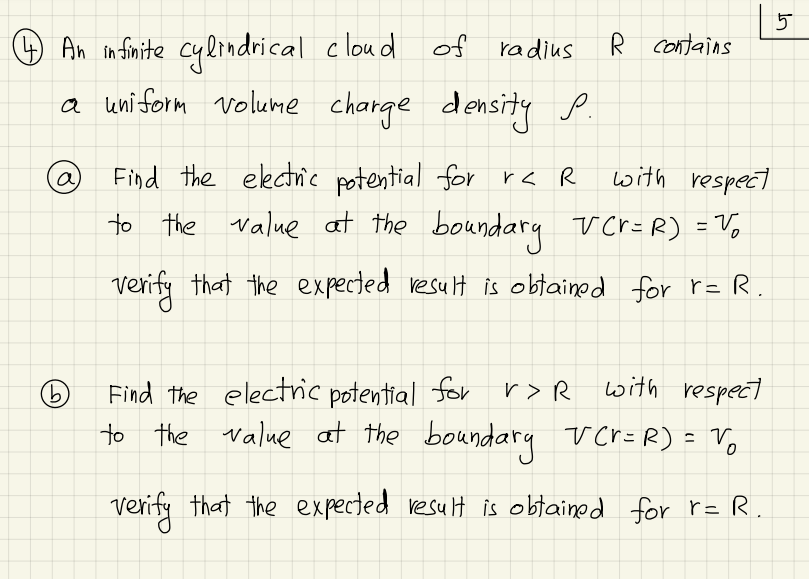 5
④ An infinite cylindrical cloud of radius R contains
a uniform volume charge density ρ.
ⓐ Find the electric potential for r < R with respect
to the value at the boundary V(r=R) = V₀
verify that the expected result is obtained for r = R.
ⓑ Find the electric potential for r > R with respect
to the value at the boundary V(r=R) = V₀
verify that the expected result is obtained for r = R.